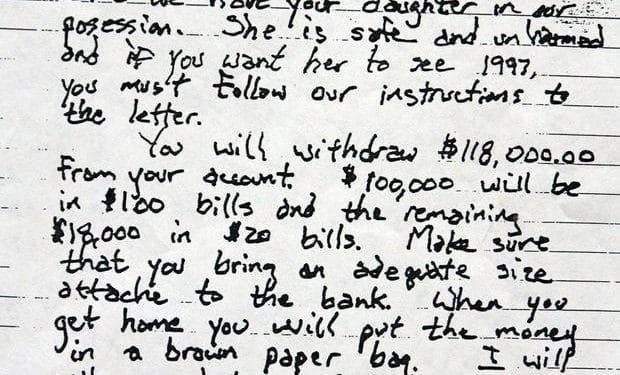 we have your daughter in our
posession. She is safe and unharmed
and if you want her to see 1997,
you must follow our instructions to
the letter.
You will withdraw $118,000.00
from your account. $100,000 will be
in $100 bills and the remaining
$18,000 in $20 bills. Make sure
that you bring an adequate size
attache to the bank. When you
get home you will put the money
in a brown paper bag. I will